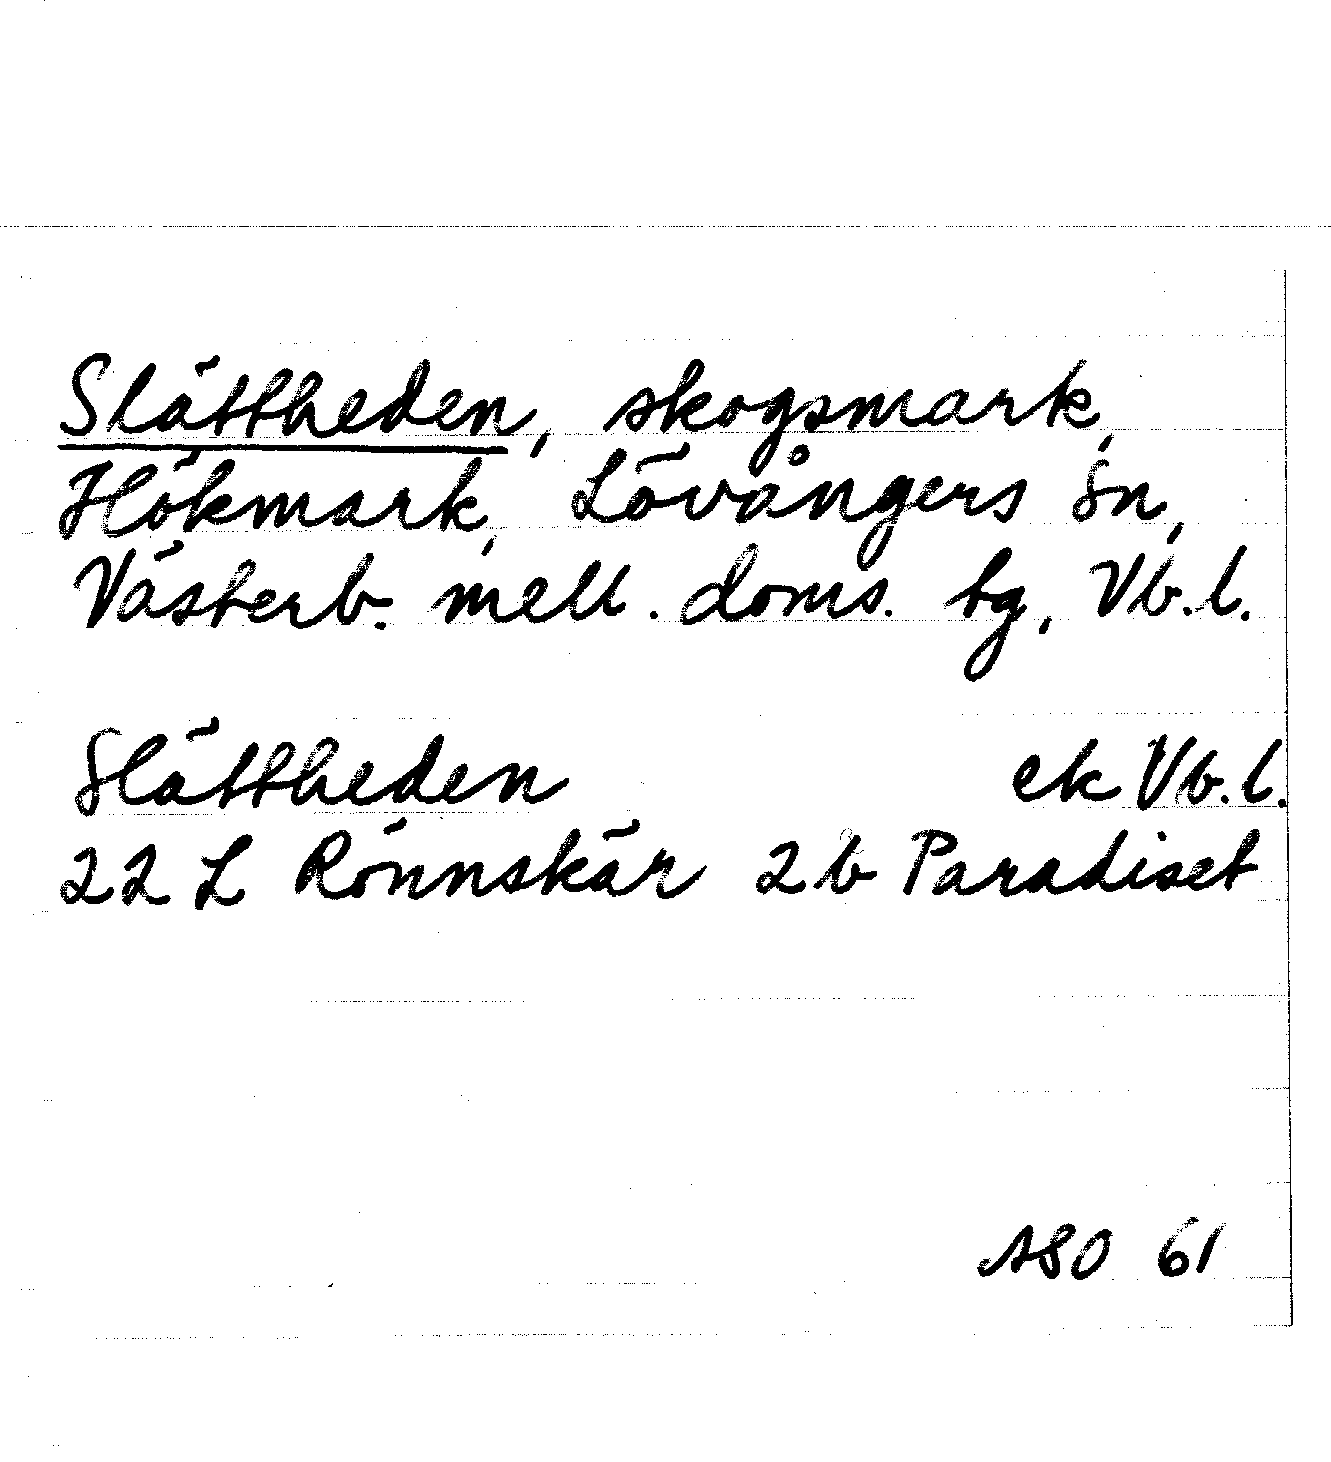 Slättheden, skogsmark,
Hökmark, Lövångers sn,
Västerb. mell. doms. tg, Vb.l.
Slättheden ek Vb.l.
22 L Rönnskär 2b Paradiset
ASO 61